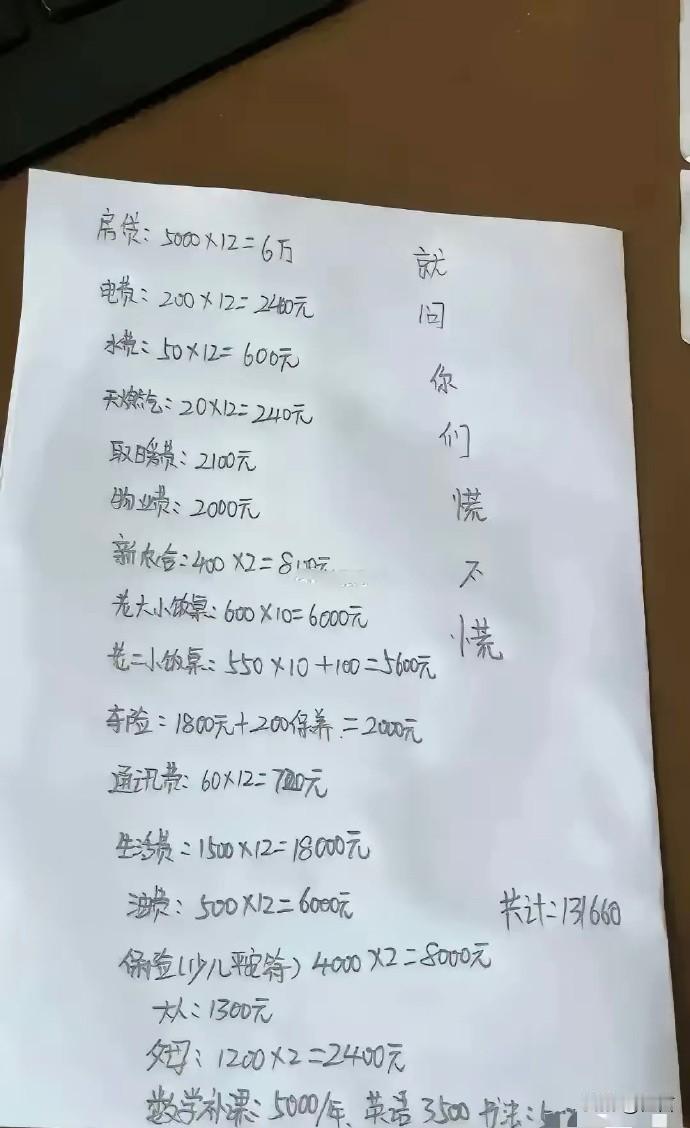 房贷：5000×12=6万
电费：200×12=2400元
水费：50×12=600元
天燃气：20×12=240元
取暖费：2100元
物业费：2000元
新农合：400×2=800元
老大小饭桌：600×10=6000元
老二小饭桌：550×10+100=5600元
车险：1800元+200保养=2000元
通讯费：60×12=720元
生活费：1500×12=18000元
油费：500×12=6000元
保险(少儿平安符) 4000×2=8000元
大人：1300元
父母：1200×2=2400元
数学补课：5000/年、英语3500 书法：
就
问
你
们
慌
不
慌
共计：131660